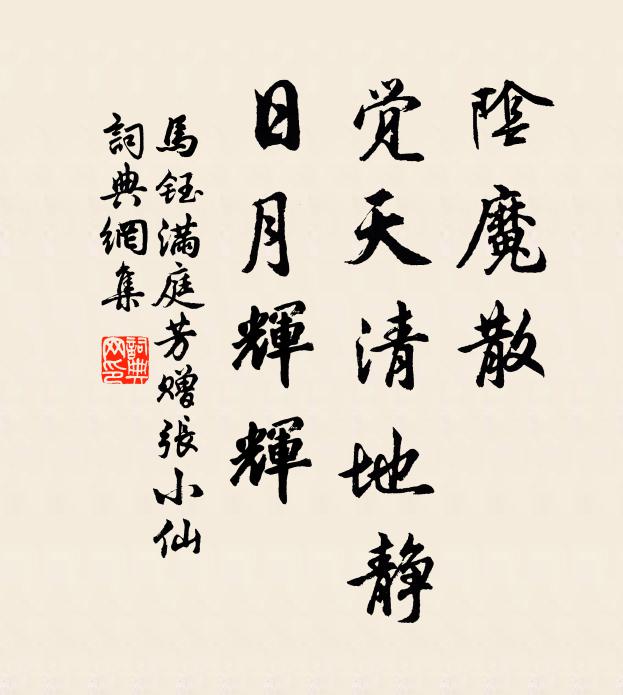 陰魔散
覚天清地静
日月輝輝
馬鈺満庭芳赠張小仙
詞典網集
詞典網印